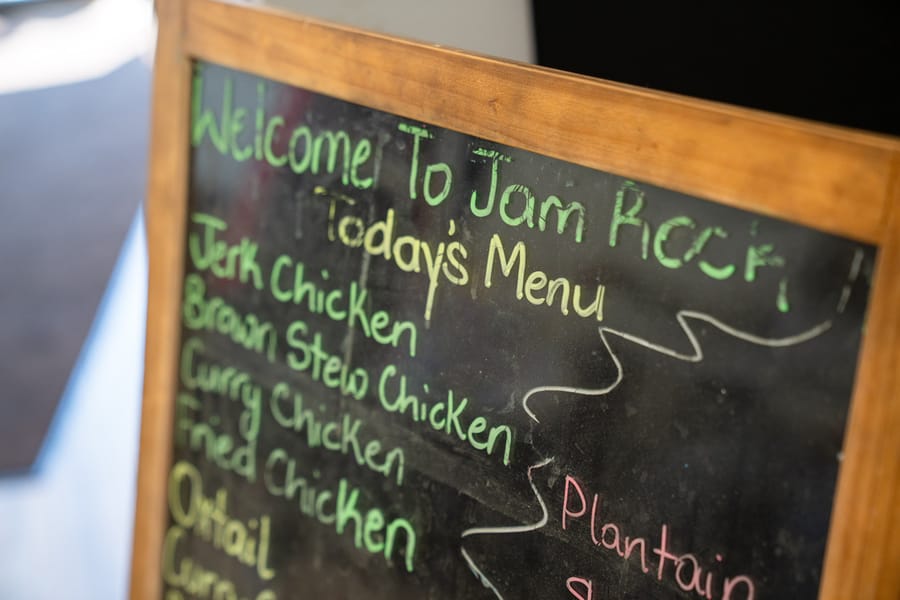 Welcome To Jam Rock
Today's Menu
Jerk Chicken
Brown Stew Chicken
Curry Chicken
Fried Chicken
Oxtail
Plantain